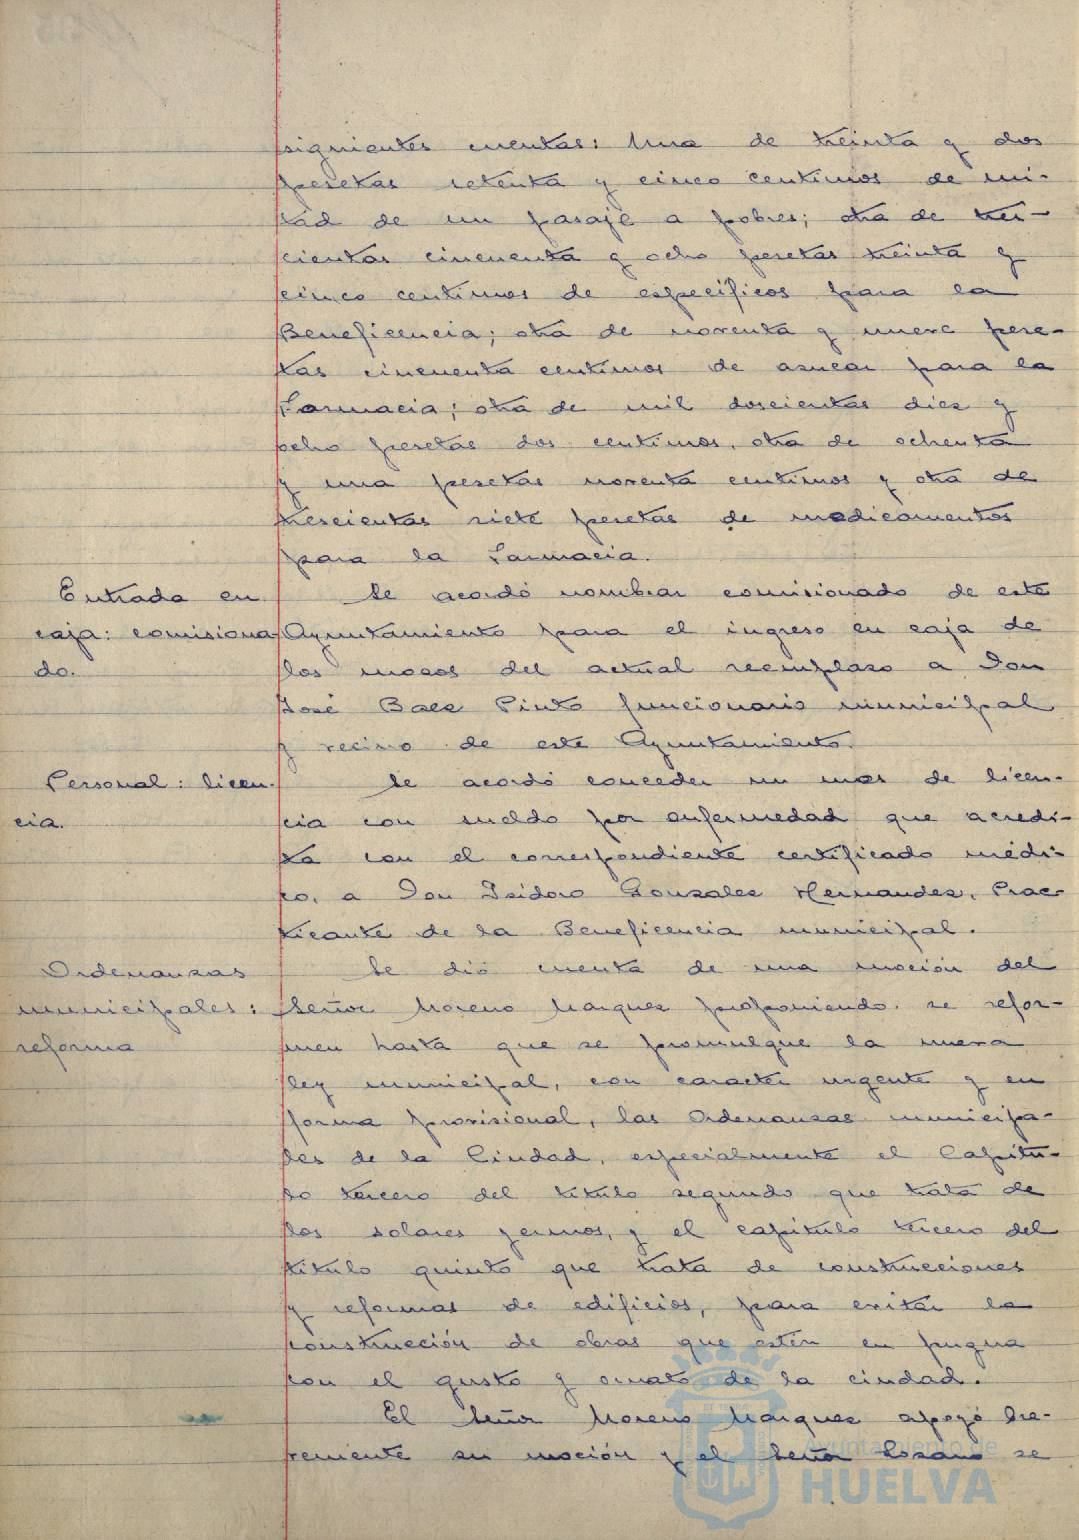 siguientes cuentas: Una de treinta y dos
pesetas setenta y cinco centimos de mi-
tad de un pasaje a pobres; otra de tres-
cientas cincuenta y ocho pesetas treinta y
cinco centimos de especificos para la
Beneficencia; otra de noventa y nueve pese-
tas cincuenta centimos de azucar para la
Farmacia; otra de mil doscientas diez y
ocho pesetas dos centimos, otra de ochenta
y una pesetas noventa centimos y otra de
trescientas siete pesetas de medicamentos
para la Farmacia.
Entrada en
caja: comisiona-
do.
Se acordó nombrar comisionado de este
Ayuntamiento para el ingreso en caja de
los mozos del actual reemplazo a Don
José Baez Pinto funcionario municipal
y vecino de este Ayuntamiento.
Personal: licen-
cia.
Se acordó conceder un mes de licen-
cia con sueldo por enfermedad que acredi-
ta con el correspondiente certificado médi-
co, a Don Isidoro Gonzalez Hernandez, Prac-
ticante de la Beneficencia municipal.
Ordenanzas
municipales:
reforma
Se dió cuenta de una moción del
Señor Moreno Marquez proponiendo se refor-
men hasta que se promulgue la nueva
ley municipal, con caracter urgente y en
forma provisional, las Ordenanzas municipa-
les de la Ciudad, especialmente el Capitu-
lo tercero del titulo segundo que trata de
los solares yermos, y el capitulo tercero del
titulo quinto que trata de construcciones
y reformas de edificios, para evitar la
construcción de obras que estén en pugna
con el gusto y ornato de la ciudad.
El Señor Moreno Marquez apoyó bre-
vemente su moción y el Señor Lozano se
Ayuntamiento de
HUELVA